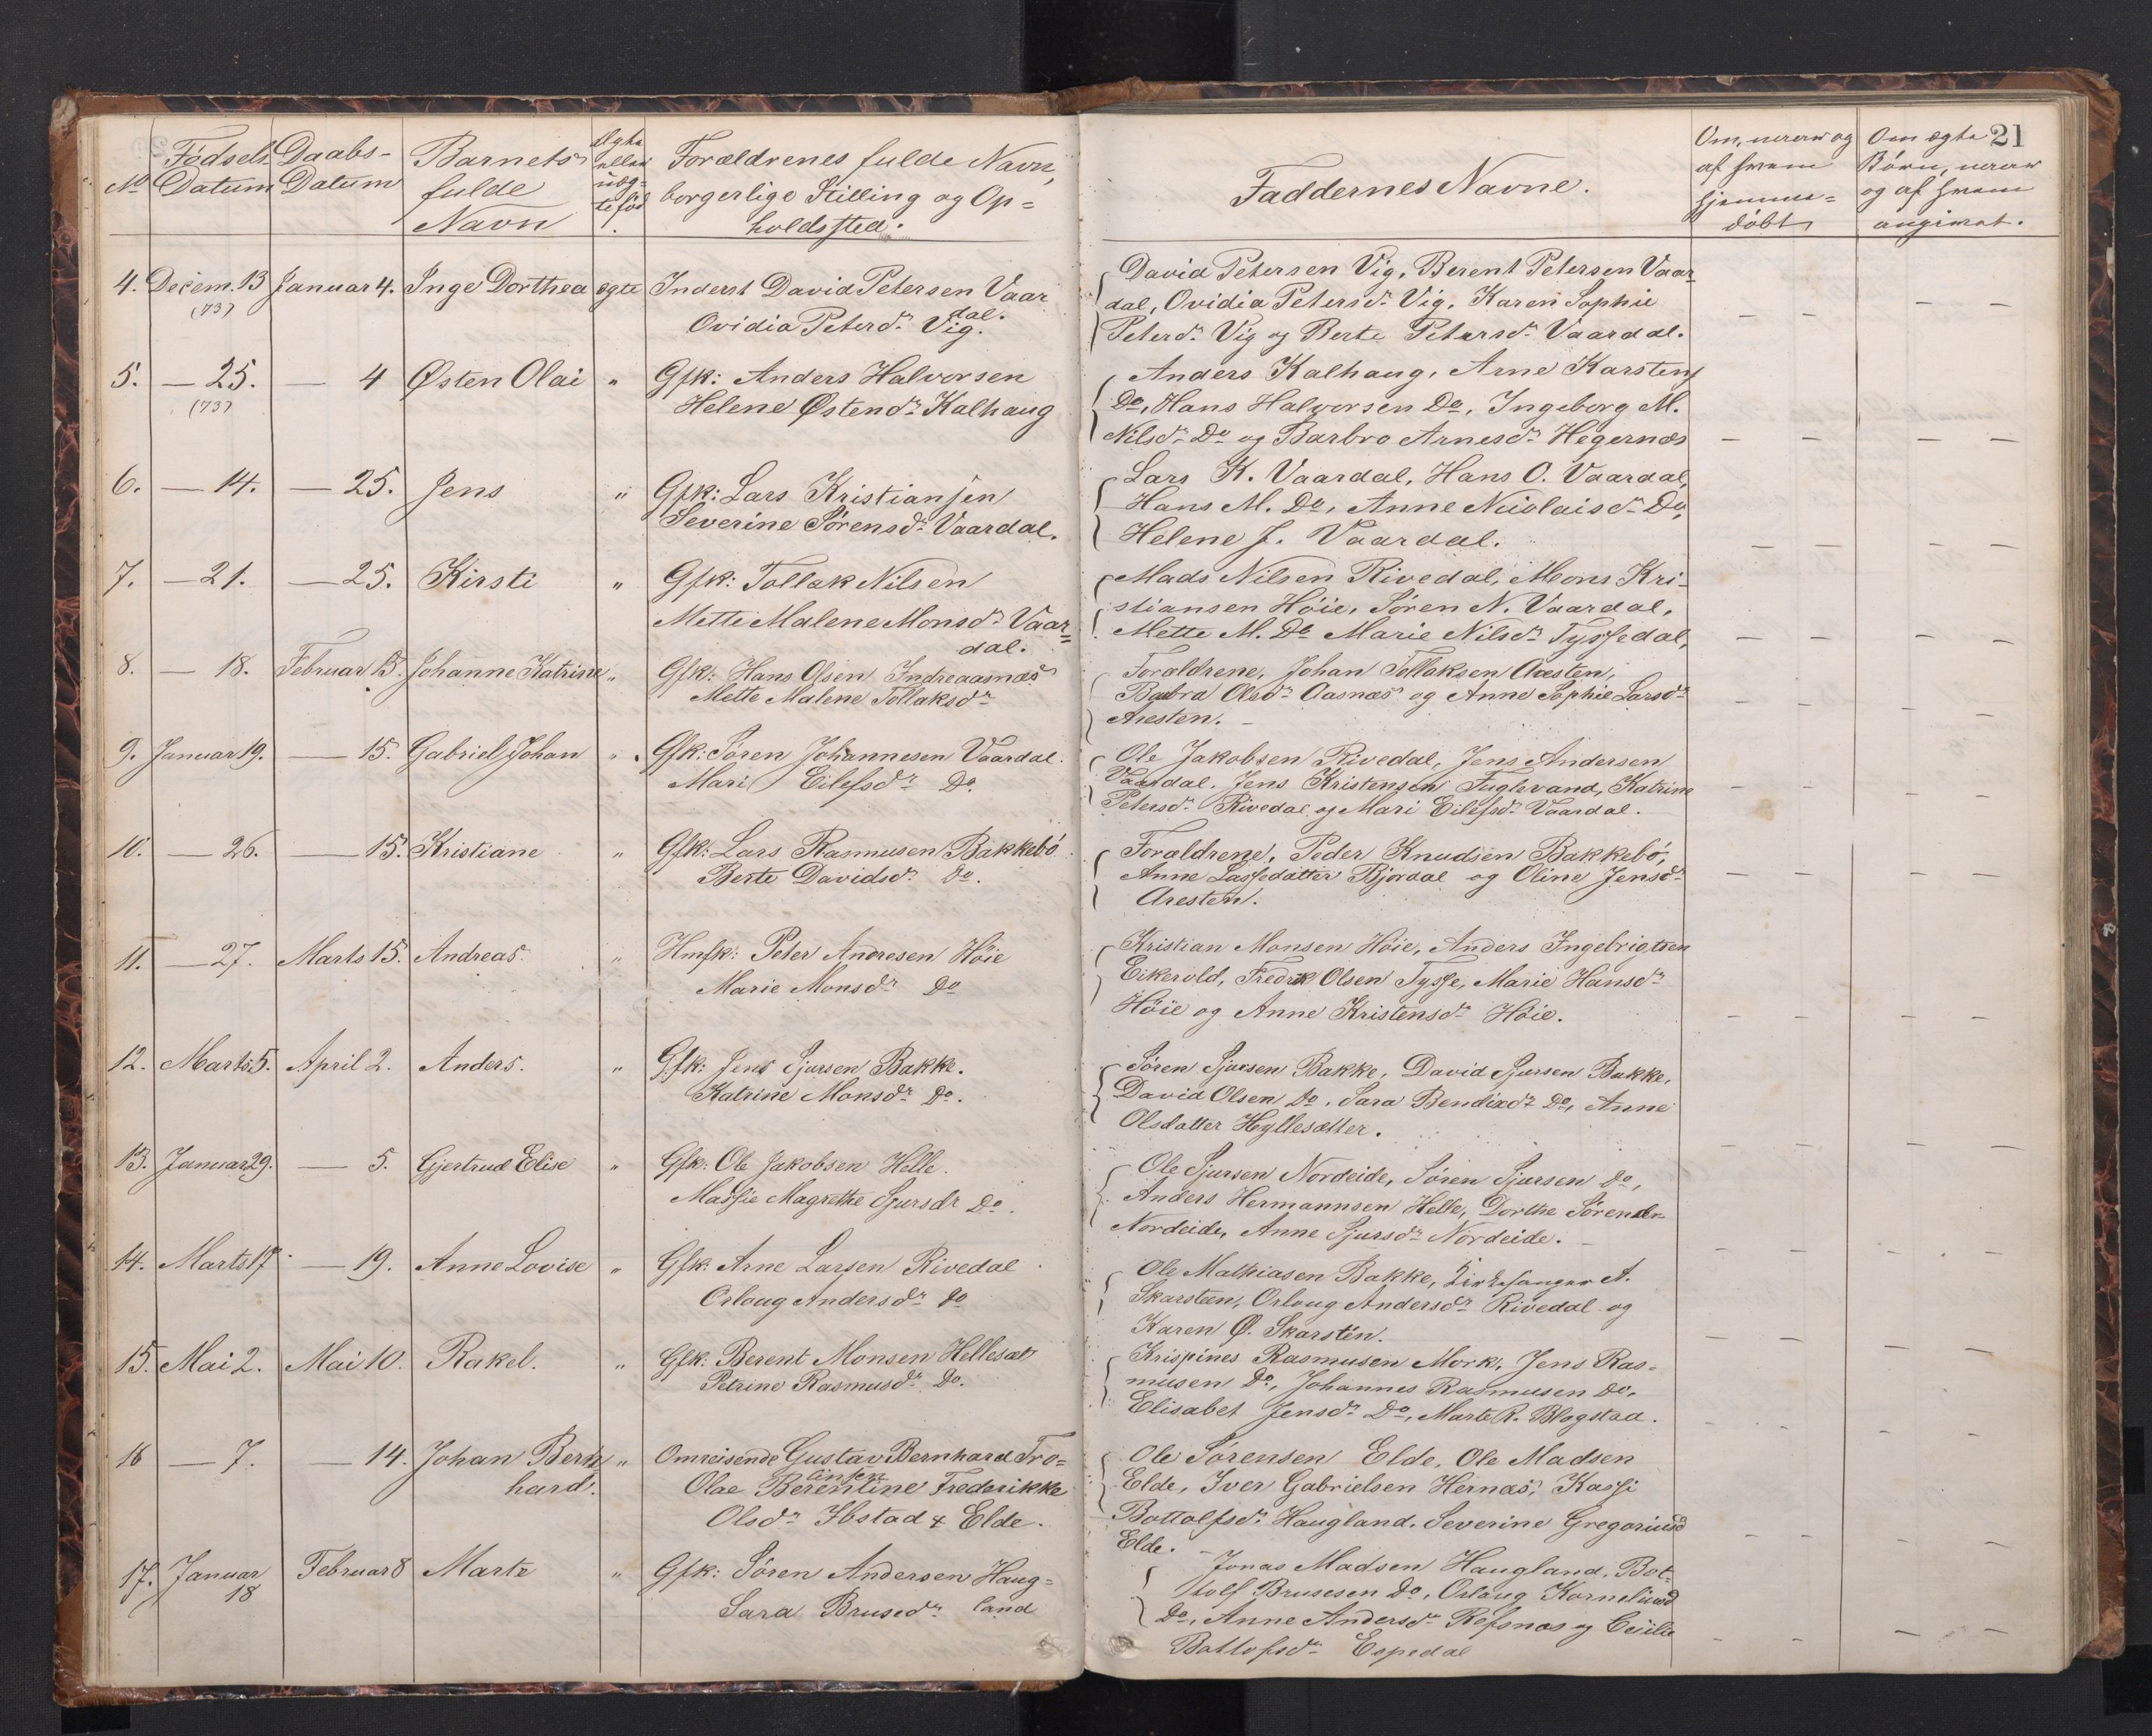 21
No Fødsels Datum Daabs- Datum Barnets fulde Navn Ægte eller uæg- te fød Forældrenes fulde Navn, borgerlige Stilling og Op= holdssted. Faddernes Navne. Om, naar og af hvem hjemme= döbt Om ægte Börn, naar og af hvem angivet.
4. Decem. 13 Januar 4. Inge Dorthea ægte Inderst David Petersen Vaar
(73) dal.
Ovidia Petersdr Vig.
David Petersen Vig, Berent Petersen Vaar-
dal, Ovidia Petersdr Vig, Karen Sophie
Petersdr Vig og Berte Petersdr Vaardal.
5. — 25. — 4 Østen Olai " Gfk: Anders Halvorsen
(73) Helene Østensdr Kalhaug
Anders Kalhaug, Arne Karstens
Do, Hans Halvorsen Do, Ingeborg M.
Nilsdr Do og Barbro Arnesdr Hegernæs
6. — 14. — 25. Jens " Gfk: Lars Kristiansen
Severine Sørensdr Vaardal.
Lars K. Vaardal, Hans O. Vaardal,
Hans M. Do, Anne Nicolaisdr Do,
Helene J. Vaardal.
7. — 21. — 25. Kirsti " Gfk: Tollak Nilsen
Mette Malene Monsdr Vaar=
dal.
Mads Nilsen Rivedal, Mons Kri-
stiansen Höie, Sören N. Vaardal,
Mette M. Do Marie Nilsdr Tyssedal,
8. — 18. Februar 15. Johanne Katrine " Gfk: Hans Olsen Indreaasnæs
Mette Malene Tollaksdr
Forældrene, Johan Tollaksen Aresten,
Babra Olsdr Oasnæs og Anne Sophie Larsdr
Aresten.
9. Januar 19. — 15. Gabriel Johan " Gfk: Sören Johannesen Vaardal.
Mari Eilefsdr Do.
Ole Jakobsen Rivedal, Jens Andersen
Vaardal, Jens Kristensen Fuglevand, Katrine
Petersdr Rivedal og Mari Eilefsdr Vaardal.
10. — 26. — 15. Kristiane " Gfk: Lars Rasmusen Bakkebö
Berte Davidsdr Do.
Forældrene, Peder Knudsen Bakkebö,
Anne Lassedatter Bjordal og Oline Jensdr
Aresten.
11. — 27. Marts 15. Andreas. " Hmfk: Peter Andresen Höie
Marie Monsdr Do
Kristian Monsen Höie, Anders Ingebrigtsen
Eikevold, Fredrik Olsen Tysse, Marie Hansdr
Höie og Anne Kristensdr Höie.
12. Marts 5. April 2. Anders. " Gfk: Jens Sjursen Bakke.
Katrine Monsdr Do.
Sören Sjursen Bakke, David Sjursen Bakke,
David Olsen Do, Sara Bendixdr Do, Anne
Olsdatter Hyllesætter.
13. Januar 29. — 5. Gjertrud Elise " Gfk: Ole Jakobsen Helle.
Massie Magrethe Sjursdr Do.
Ole Sjursen Nordeide, Sören Sjursen Do,
Anders Hermannsen Helle, Dorthe Sörensdr
Nordeide, Anne Sjursdr Nordeide.
14. Marts 17 — 19. Anne Lovise " Gfk: Arne Larsen Rivedal
Orloug Andersdr Do
Ole Mathiasen Bakke, Kirkesanger A.
Skarsteen, Orloug Andersdr Rivedal og
Karen Ø. Skarsten.
15. Mai 2. Mai 10. Rakel. " Gfk: Berent Monsen Hellesæt
Petrine Rasmusdr Do.
Krispines Rasmusen Mork, Jens Ras=
musen Do, Johannes Rasmusen Do,
Elisabet Jensdr Do, Marte R. Blogstad.
16 — 7. — 14. Johan Bern " Omreisende Gustav Bernhard Fro=
hard. linsen
Olae Berentine Frederikke
Olsdr Ibstad & Elde.
Ole Sörensen Elde, Ole Madsen
Elde, Iver Gabrielsen Hernæs, Kassi
Bottolfsdr Haugland, Severine Gregoriusd
Elde.
17. Januar 18 Februar 8 Marte " Gfk: Sören Andersen Haug=
Sara Brusedr land
Jonas Madsen Haugland, Bot=
tolf Brusesen Do, Orlaug Korneliusd
Do, Anne Andersdr Refsnæs og Cecilie
Bottolfsdr Espedal